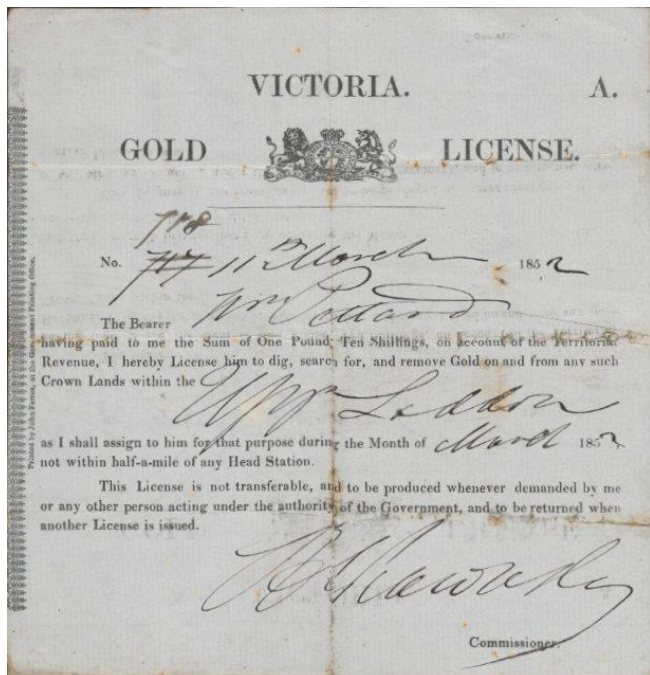 VICTORIA. A.
GOLD LICENSE.
718
No. 717 11 March 1852
The Bearer Wm Pollard
having paid to me the Sum of One Pound, Ten Shillings, on account of the Territorial
Revenue, I hereby License him to dig, search for, and remove Gold on and from any such
Crown Lands within the
Upp Loddon
as I shall assign to him for that purpose during the Month of March 1852
not within half-a-mile of any Head Station.
This License is not transferable, and to be produced whenever demanded by me
or any other person acting under the authority of the Government, and to be returned when
another License is issued.
Commissioner.
Printed by John Ferres, at the Government Printing Office.